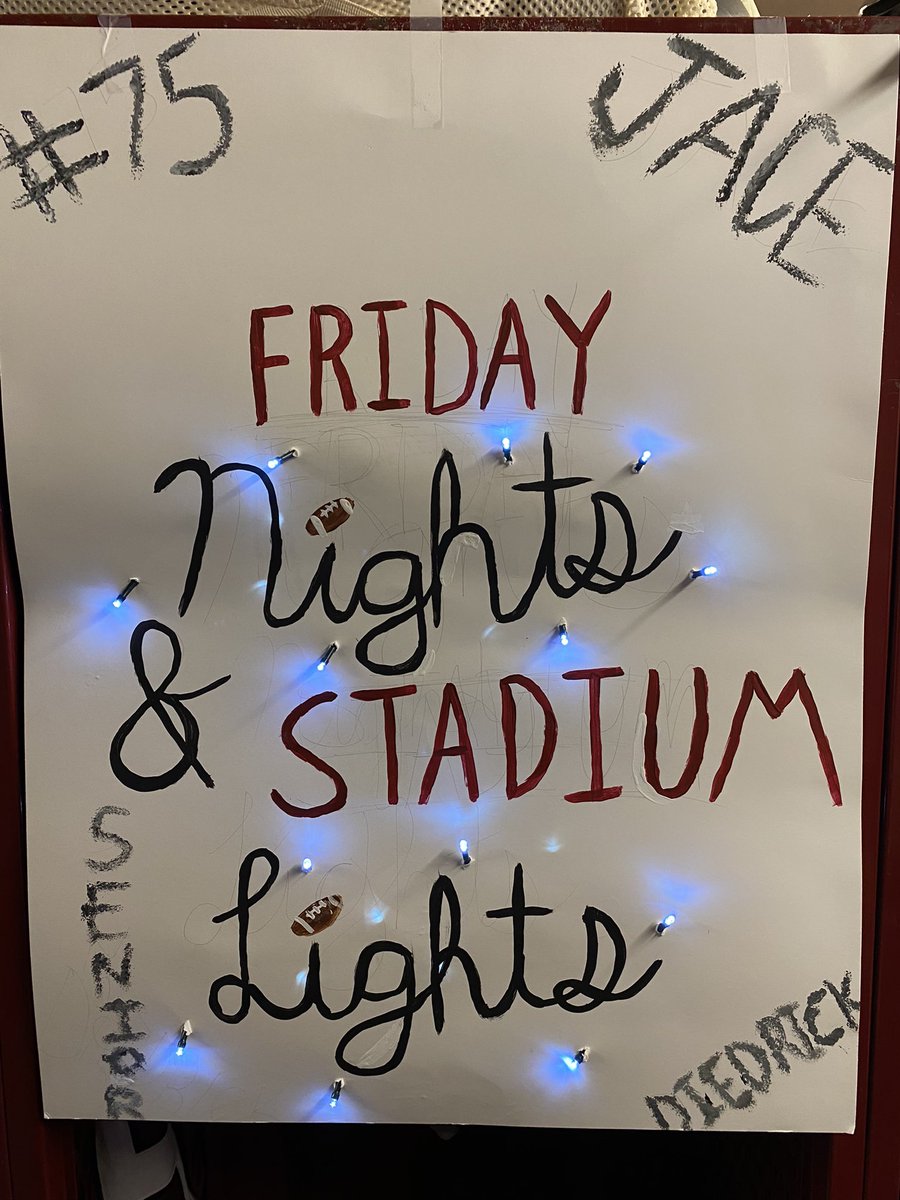 #75
JACE
FRIDAY
Nights
& STADIUM
Lights
SENIOR
DIEDRICK